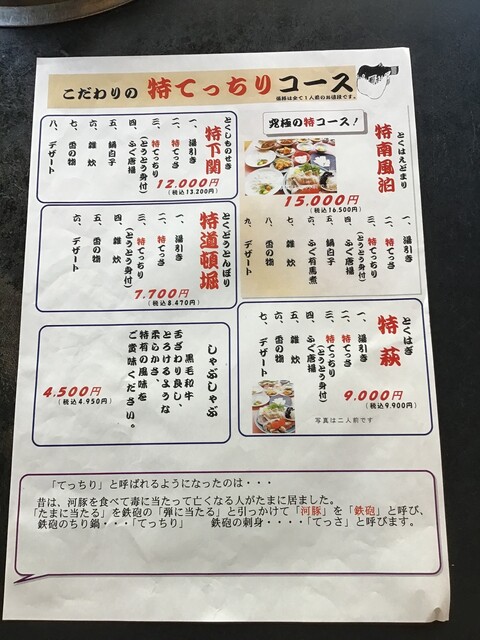 こだわりの 特てっちりコース
価格は全て1人前のお値段です。
究極の特コース！
とくはえどまり
特南風泊
15,000円
（税込16,500円）
一、湯引き
二、特てっさ
三、特てっちり
（とうとう身付）
四、ふく唐揚
五、鍋白子
六、ふく有馬煮
七、雑炊
八、香の物
九、デザート
とくしものせき
特下関
一、湯引き
二、特てっさ
三、特てっちり
（とうとう身付）
四、ふく唐揚
五、鍋白子
六、雑炊
七、香の物
八、デザート
12,000円
（税込13,200円）
とくどうとんぼり
特道頓堀
一、湯引き
二、特てっさ
三、特てっちり
（とうとう身付）
四、雑炊
五、香の物
六、デザート
7,700円
（税込8,470円）
とくはぎ
特萩
一、湯引き
二、特てっさ
三、特てっちり
（とうとう身付）
四、ふく唐揚
五、雑炊
六、香の物
七、デザート
9,000円
（税込9,900円）
写真は二人前です
しゃぶしゃぶ
黒毛和牛
舌ざわり良し、
とろけるような
柔らかさ、
特有の風味を
ご賞味ください。
4,500円
（税込4,950円）
「てっちり」と呼ばれるようになったのは・・・
昔は、河豚を食べて毒に当たって亡くなる人がたまに居ました。
「たまに当たる」を鉄砲の「弾に当たる」と引っかけて「河豚」を「鉄砲」と呼び、
鉄砲のちり鍋・・・「てっちり」 鉄砲の刺身・・・・「てっさ」と呼びます。